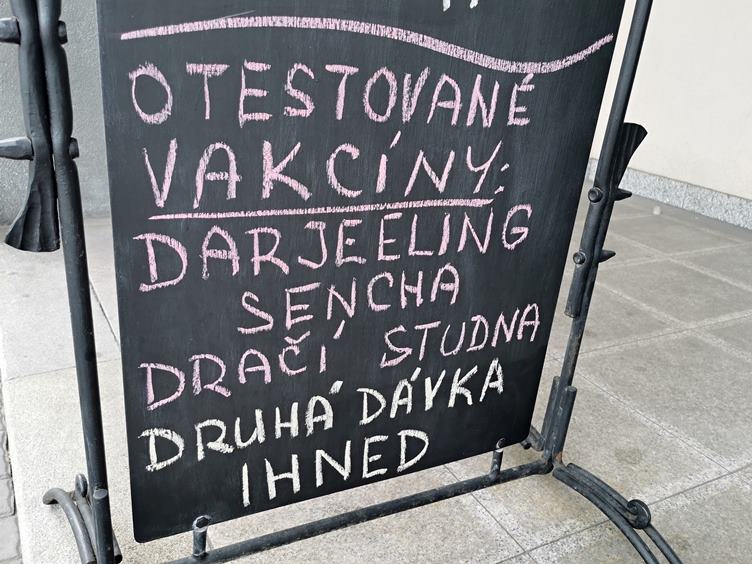 OTESTOVANÉ
VAKCÍNY:
DARJEELING
SENCHA
DRAČÍ STUDNA
DRUHÁ DÁVKA
IHNED